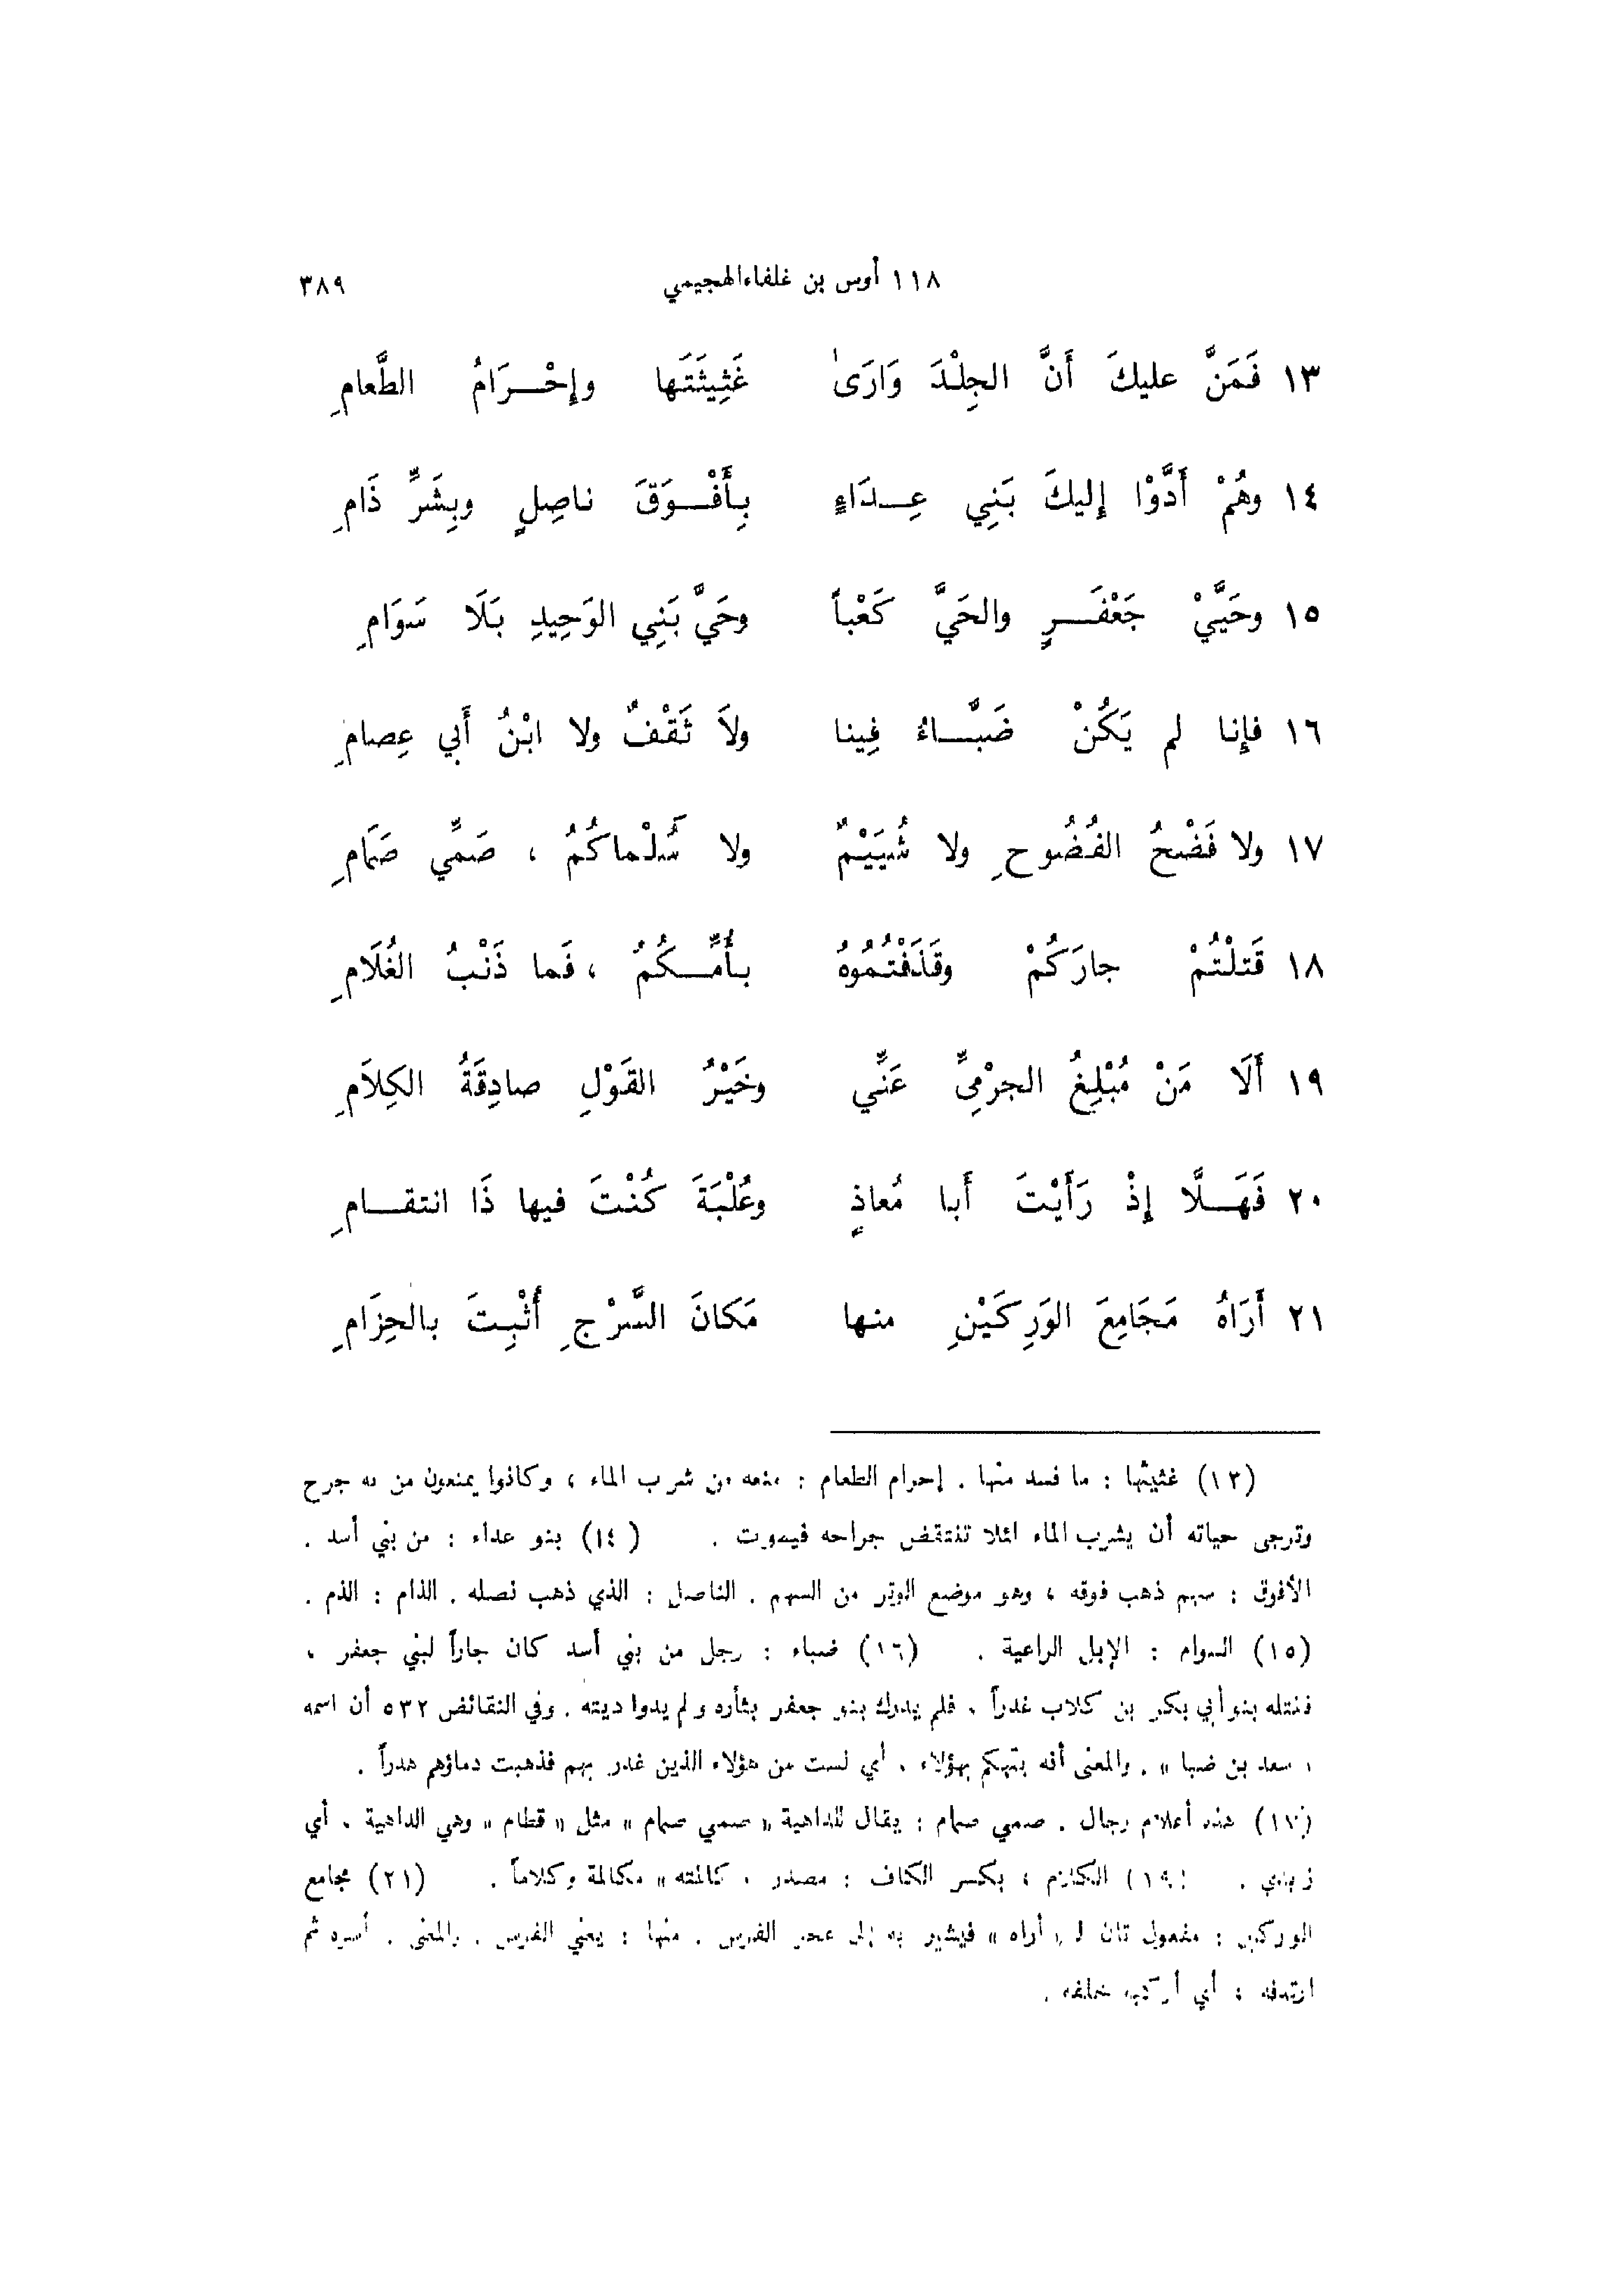 ١١٨ أوس بن غلفاء الهجيمي ٣٨٩
١٣ فَمَنَّ عليكَ أَنَّ الجِلْدَ وَارَىٰ غَثِيثَتَها وإحْرَامُ الطَّعامِ
١٤ وهُمْ أَدَّوْا إِليكَ بَنِي عِدَاءٍ بِأَفْوَقَ ناصِلٍ وبِشَرِّ ذَامِ
١٥ وحَيَّيْ جَعْفَرٍ والحَيَّ كَعْباً وحَيَّ بَنِي الوَحِيدِ بَلَا سَوَامِ
١٦ فإِنا لم يَكُنْ ضَبَّاءُ فِينا ولاَ ثَقْفٌ ولا ابْنُ أَبي عِصامِ
١٧ ولا فَضْحُ الفُضُوحِ ولا شُيَيْمٌ ولا سُلْماكُمُ ، صَمِّي صَمَامِ
١٨ قَتلْتُمْ جارَكُمْ وقَذَفْتُمُوهُ بأُمِّكُمُ ، فَما ذَنْبُ الغُلَامِ
١٩ أَلَا مَنْ مُبْلِغُ الجرْمِىِّ عَنِّي وخَيْرُ القَوْلِ صادِقَةُ الكِلاَمِ
٢٠ فَهَلَّا إِذْ رَأَيْتَ أَبا مُعاذٍ وعُلْبَةَ كُنْتَ فيها ذَا انتقامِ
٢١ أَرَاهُ مَجَامِعَ الوَرِكَيْنِ منها مَكانَ السَّرْجِ أُثْبِتَ بالحِزَامِ
(١٣) غثيثها : ما فسد منها . إحرام الطعام : منعه من شرب الماء ، وكانوا يمنعون من به جرح
وترجى حياته أن يشرب الماء لئلا تنتقض جراحه فيموت . (١٤) بنو عداء : من بني أسد .
الأفوق : سهم ذهب فوقه ، وهو موضع الوتر من السهم . الناصل : الذي ذهب نصله . الذام : الذم .
(١٥) السوام : الإبل الراعية . (١٦) ضباء : رجل من بني أسد كان جاراً لبني جعفر ،
فقتله بنو أبي بكر بن كلاب غدراً ، فلم يدرك بنو جعفر بثأره ولم يدوا ديته . وفي النقائض ٥٣٢ أن اسمه
« سعد بن ضبا » . والمعنى أنه يتهكم بهؤلاء ، أي لست من هؤلاء الذين غدر بهم فذهبت دماؤهم هدراً .
(١٧) هذه أعلام رجال . صمي صمام : يقال للداهية « صمي صمام » مثل « قطام » وهي الداهية . أي
زيدي . (١٩) الكلام ، بكسر الكاف : مصدر « كالمته » مكالمة وكلاماً . (٢١) مجامع
الوركين : مفعول ثان لـ « أراه » فيشير به إلى عجز الفرس . منها : يعني الفرس . والمعنى . أسره ثم
ارتدفه ، أي أركبه خلفه .